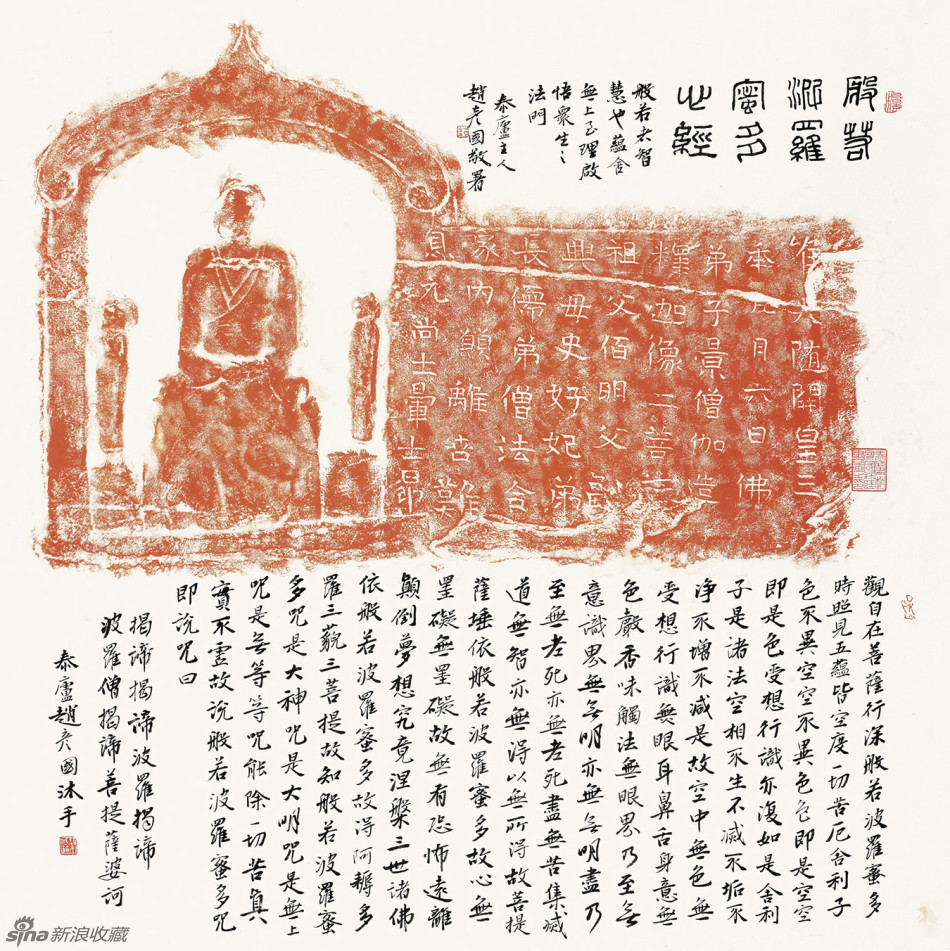 般若
波羅
蜜多
心經
般若大智
慧也蘊含
無上至理啟
悟眾生之
法門
泰廬主人
趙彥國敬署
唯大随開皇三
年九月六日佛
弟子景僧伽造
釋迦像二菩士
祖父佰明父
興母史好妃弟
長儒弟僧法合
家内願離苦難
息元尚士暈士昂
觀自在菩薩行深般若波羅蜜多
時照見五蘊皆空度一切苦厄舍利子
色不異空空不異色色即是空空
即是色受想行識亦復如是舍利
子是諸法空相不生不滅不垢不
淨不增不減是故空中無色無
受想行識無眼耳鼻舌身意無
色聲香味觸法無眼界乃至無
意識界無無明亦無無明盡乃
至無老死亦無老死盡無苦集滅
道無智亦無得以無所得故菩提
薩埵依般若波羅蜜多故心無
罣礙無罣礙故無有恐怖遠離
顛倒夢想究竟涅槃三世諸佛
依般若波羅蜜多故得阿耨多
羅三藐三菩提故知般若波羅蜜
多咒是大神咒是大明咒是無上
咒是無等等咒能除一切苦真
實不虛故說般若波羅蜜多咒
即說咒曰
揭諦揭諦波羅揭諦
波羅僧揭諦菩提薩婆訶
泰廬趙彥國沐手
sina新浪收藏